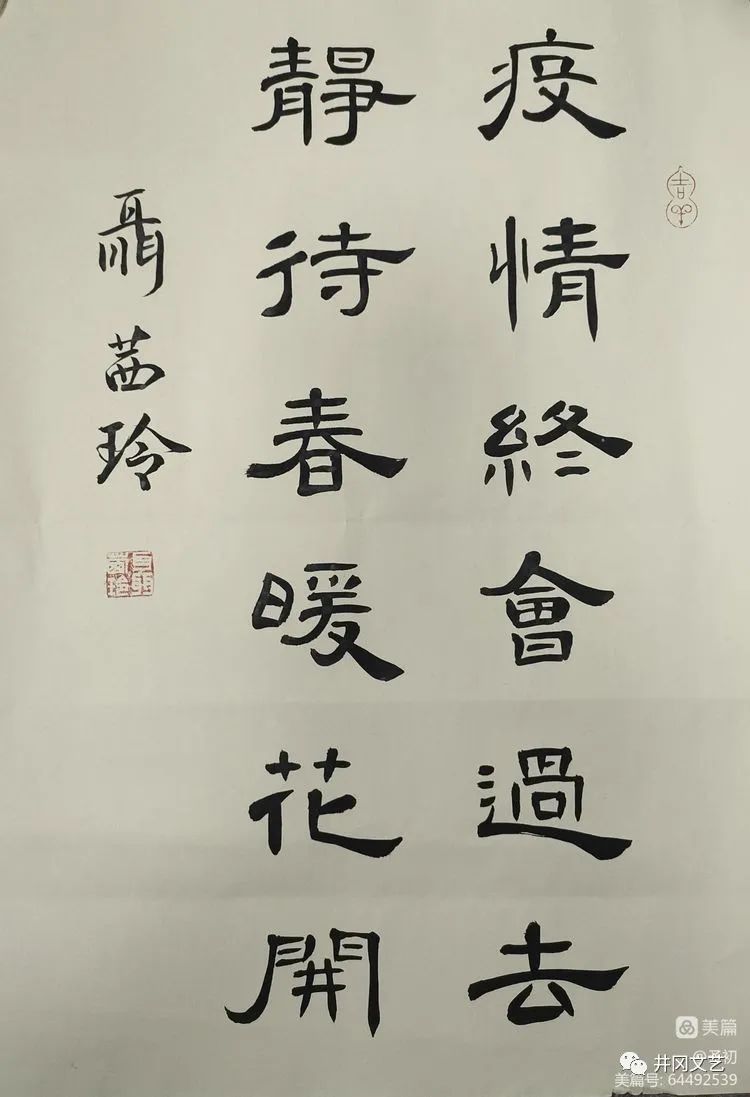 疫情終會過去
靜待春暖花開
聶茜玲
吉
美篇
井冈文艺
美篇号: 64492539